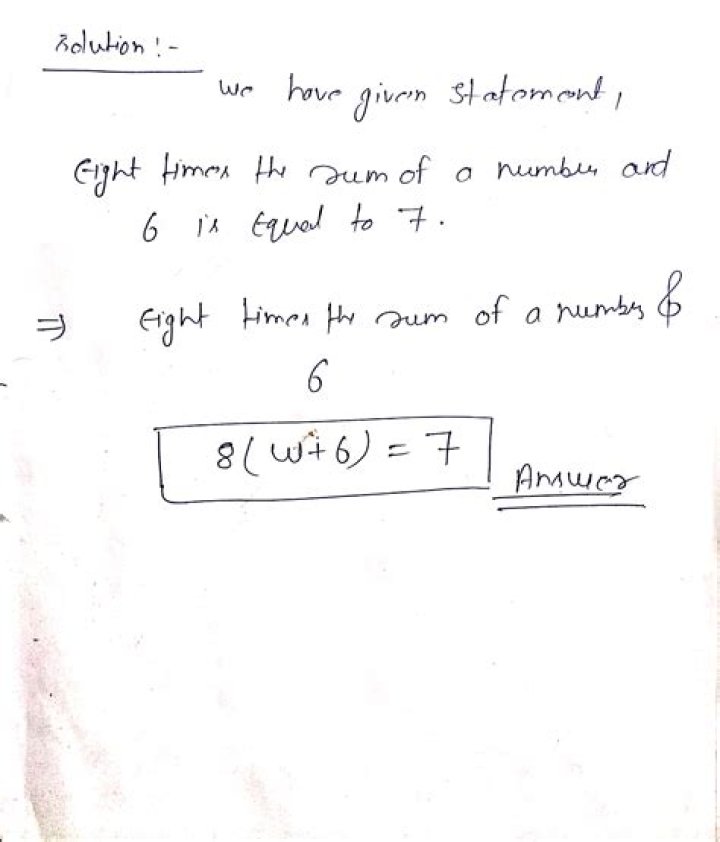 Solution :-
We have given statement,
Eight times the sum of a number and
6 is Equal to 7.
⇒ Eight times the sum of a number &
6
8(w+6) = 7
Answer